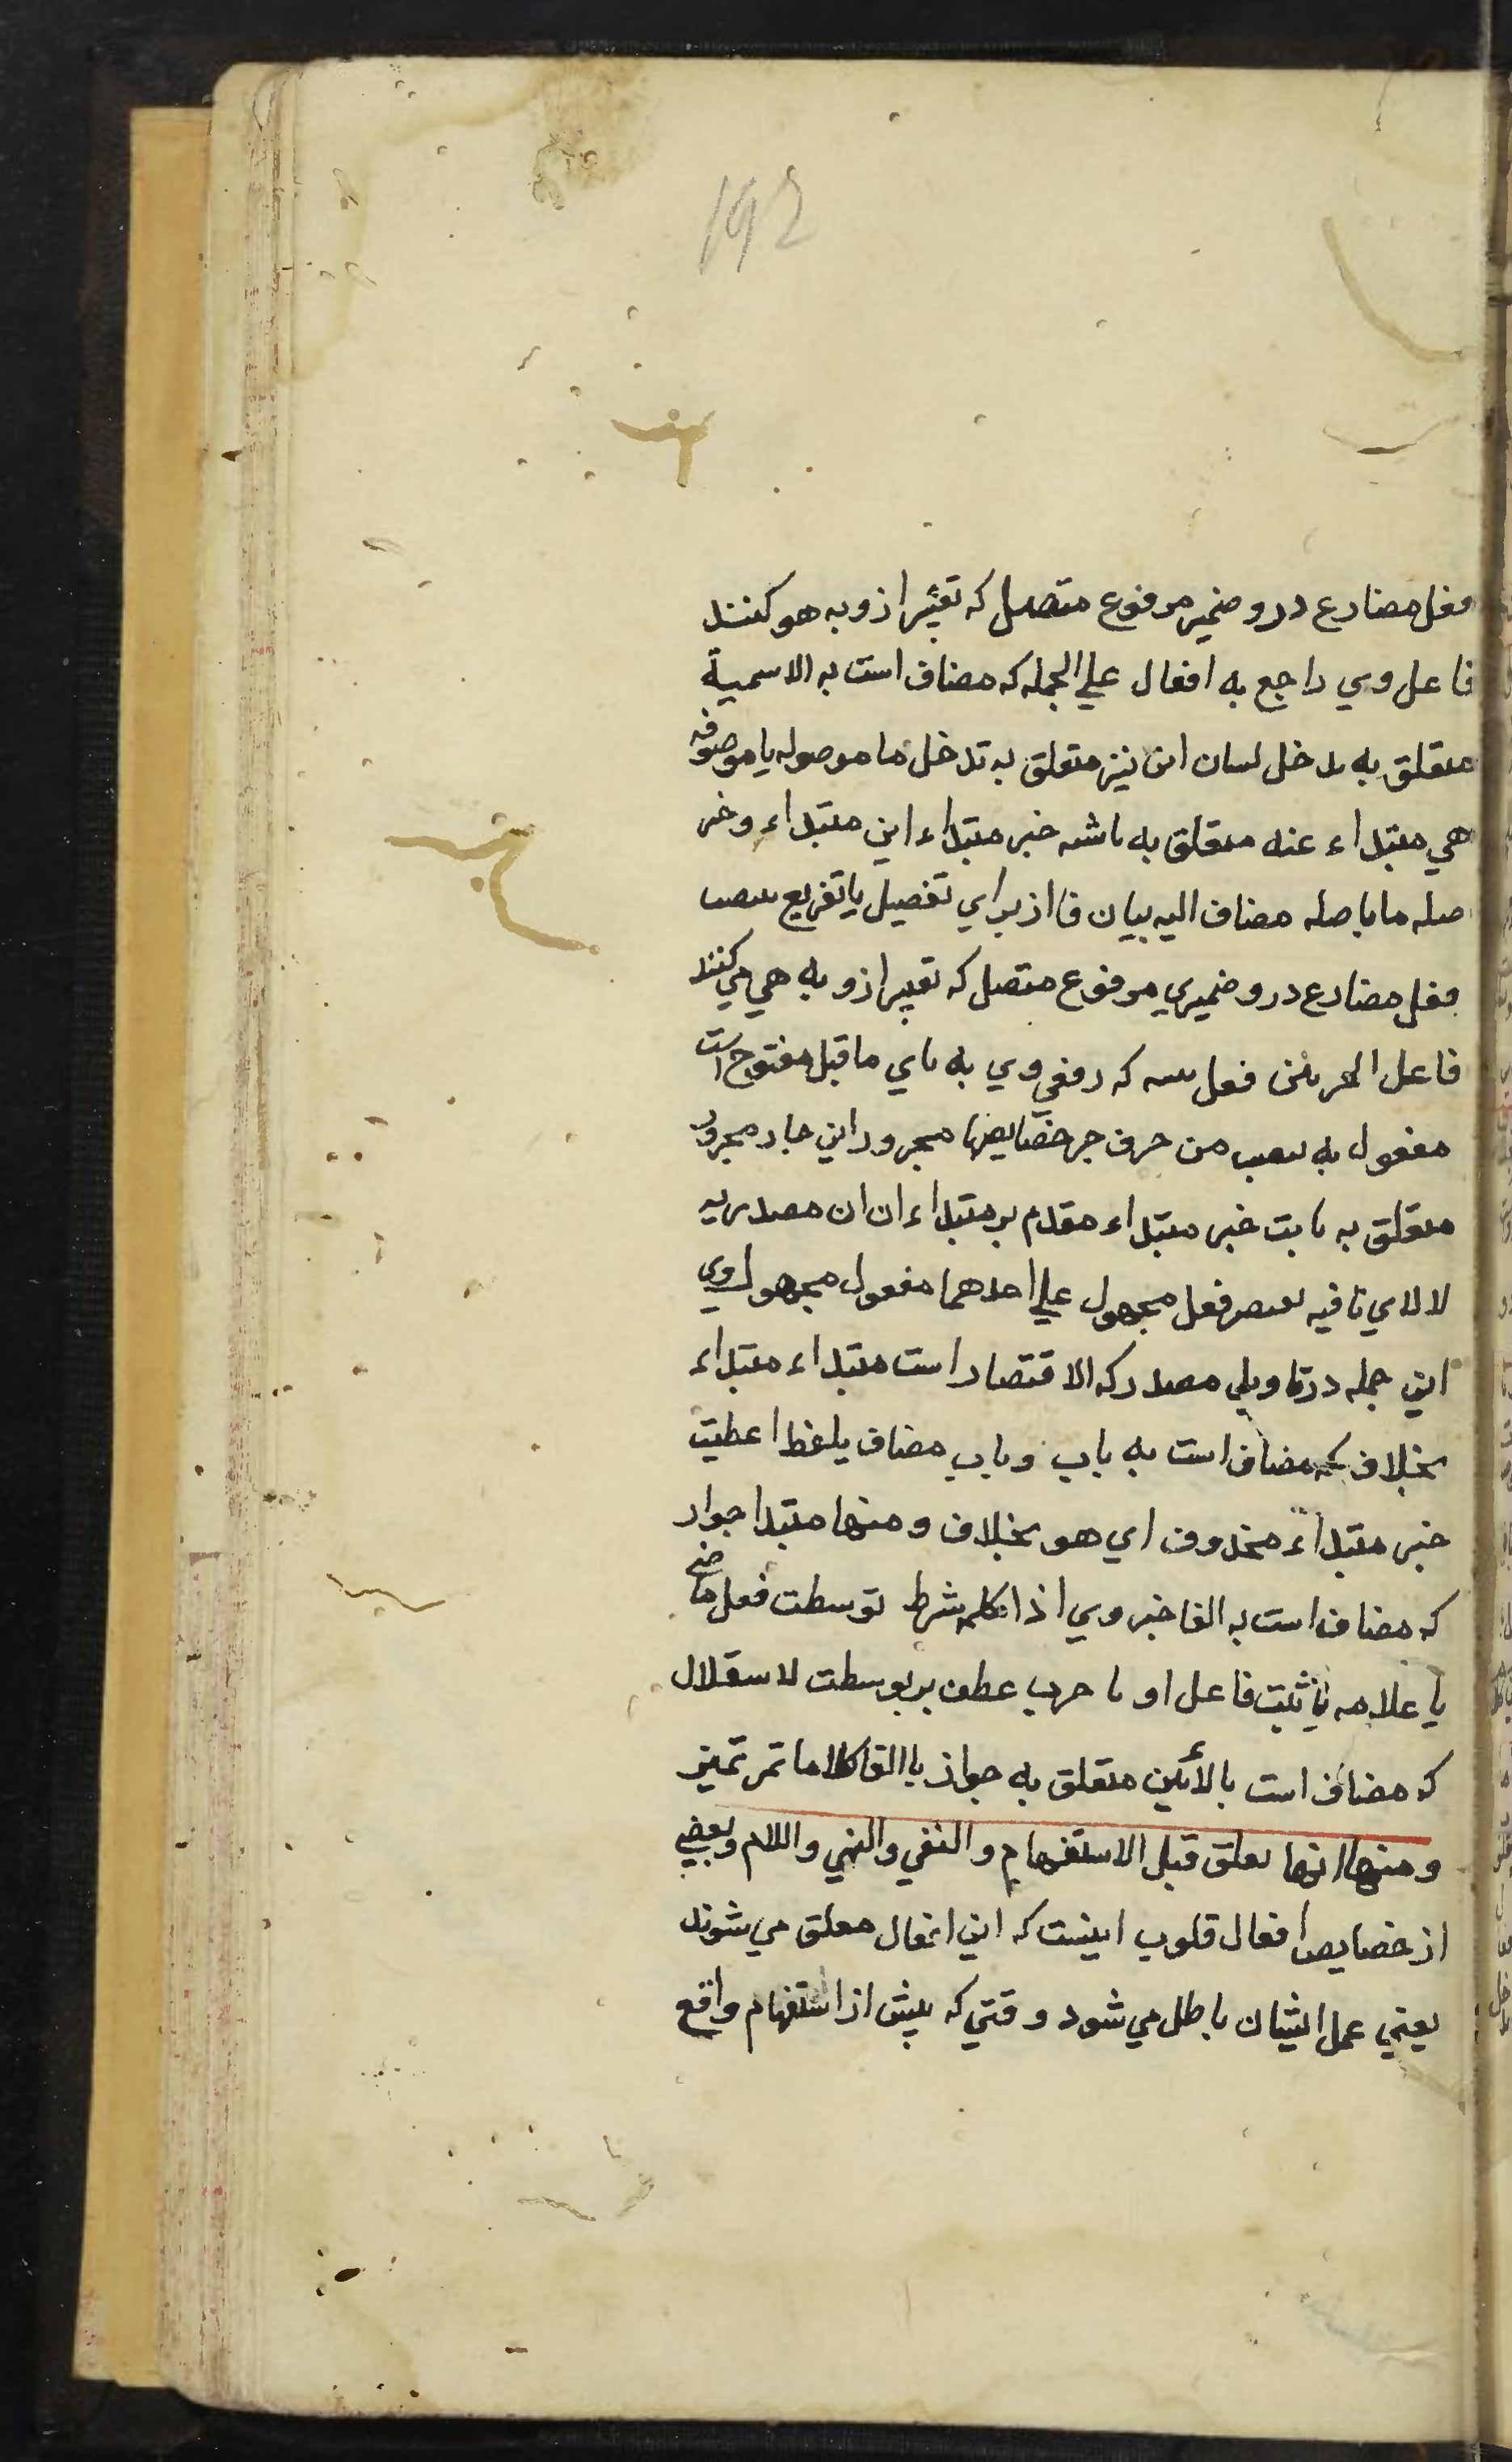 192
فعل مضارع درو ضمیر مرفوع متصل که تعبیر ازو به هو کنند
فاعل وي راجع به افعال علي الجمله که مضاف است به الاسمیة
متعلق به تدخل لبیان این نیز متعلق به تدخل ما موصوله یا موصوفه
هي مبتداء عنه متعلق به ناشئه خبر مبتداء این مبتداء و خبر
صله ما با صله مضاف الیه بیان فا از براي تفصیل یا تفریع تنصب
فعل مضارع درو ضمیري مرفوع متصل که تعبیر ازو به هي مي کنند
فاعل الجزئین فعل که رفع وي به یاي ما قبل مفتوح است
مفعول به تنصب من حرف جر خصایصها مجرور این جار مجرور
متعلق به ثابت خبر مبتداء مقدم بر مبتداء ان ان مصدریه
لا لاي نافیه یقتصر فعل مجهول علي احدهما مفعول مجهول وي
این جمله در تاویل مصدر که الاقتصار است مبتداء مبتداء
بخلاف که مضاف است به باب و باب مضاف بلفظ اعطیت
خبر مبتداء محذوف اي هو بخلاف و منها مبتدا جواز
که مضاف است به الغا خبر وي اذا کلمه شرط توسطت فعل ماضي
یا علامه تانیث فاعل او تاخرت عطف بر توسطت لاستقلال
که مضاف است بالجزئین متعلق به جواز یا الغا کلاما تمر تمیز
و منها انها تعلق قبل الاستفهام و النفي والنهي واللام و بعضي
از خصایص افعال قلوب اینست که این افعال معلق مي شوند
یعني عمل ایشان باطل مي شود وقتي که پیش از استفهام واقع